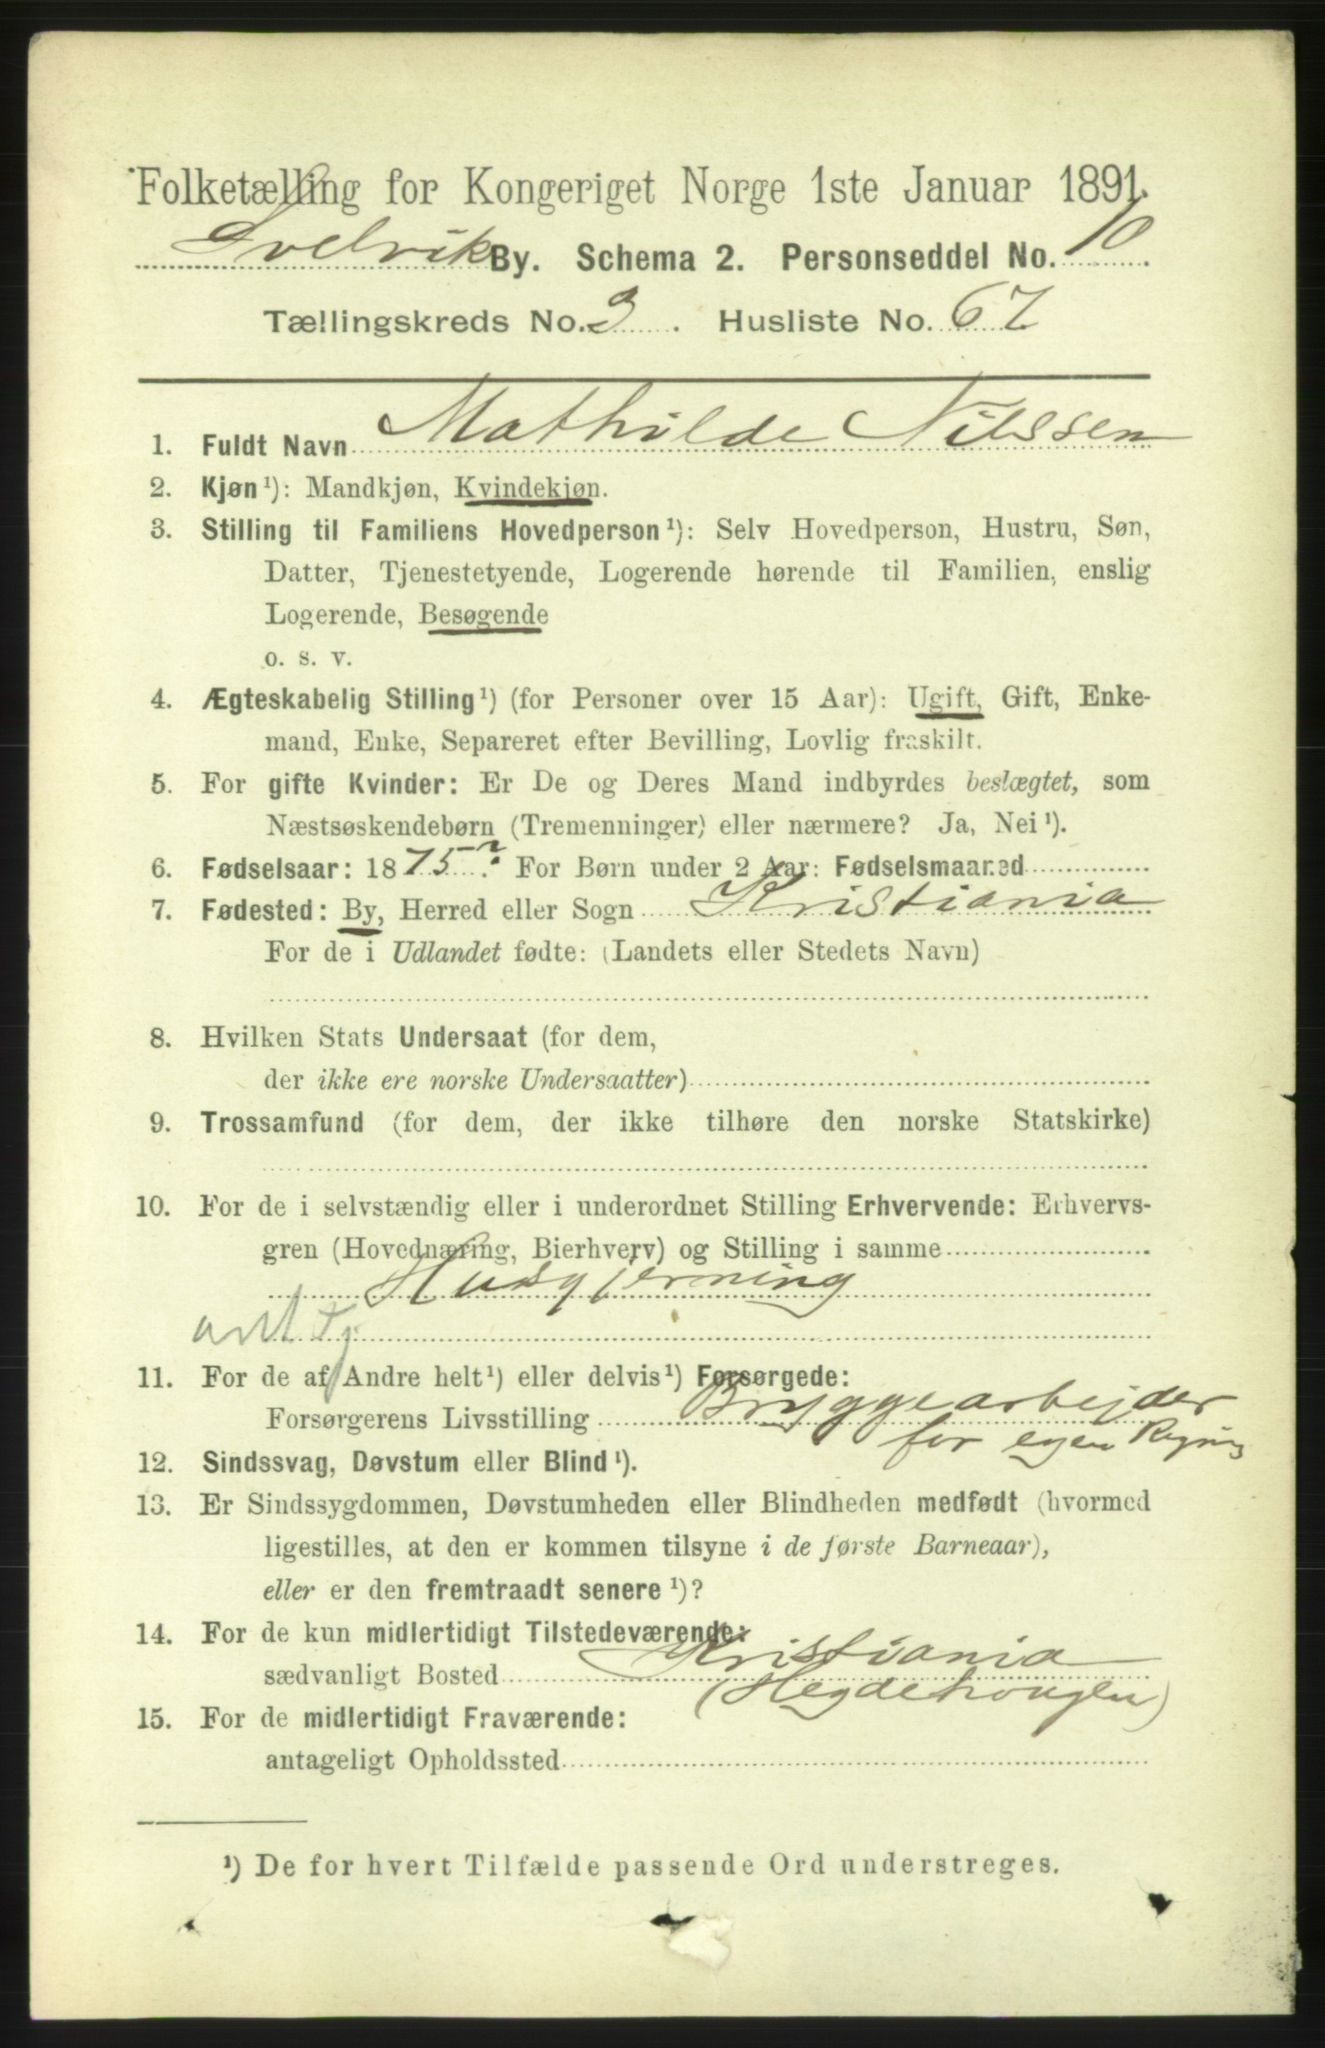 Folketælling for Kongeriget Norge 1ste Januar 1891.
Svelvik By. Schema 2. Personseddel No. 10
Tællingskreds No. 3. Husliste No. 67
1. Fuldt Navn Mathilde Nilssen
2. Kjøn¹): Mandkjøn, Kvindekjøn.
3. Stilling til Familiens Hovedperson¹): Selv Hovedperson, Hustru, Søn,
Datter, Tjenestetyende, Logerende hørende til Familien, enslig
Logerende, Besøgende
o. s. v.
4. Ægteskabelig Stilling¹) (for Personer over 15 Aar): Ugift, Gift, Enke-
mand, Enke, Separeret efter Bevilling, Lovlig fraskilt.
5. For gifte Kvinder: Er De og Deres Mand indbyrdes beslægtet, som
Næstsøskendebørn (Tremenninger) eller nærmere? Ja, Nei¹).
6. Fødselsaar: 1875? For Børn under 2 Aar: Fødselsmaaned
7. Fødested: By, Herred eller Sogn Kristiania
For de i Udlandet fødte: (Landets eller Stedets Navn)
8. Hvilken Stats Undersaat (for dem,
der ikke ere norske Undersaatter)
9. Trossamfund (for dem, der ikke tilhøre den norske Statskirke)
10. For de i selvstændig eller i underordnet Stilling Erhvervende: Erhvervs-
gren (Hovednæring, Bierhverv) og Stilling i samme
Husgjerning
11. For de af Andre helt¹) eller delvis¹) Forsørgede:
Forsørgerens Livsstilling Bryggearbejder
for egen Regning
12. Sindssvag, Døvstum eller Blind¹).
13. Er Sindssygdommen, Døvstumheden eller Blindheden medfødt (hvormed
ligestilles, at den er kommen tilsyne i de første Barneaar),
eller er den fremtraadt senere¹)?
14. For de kun midlertidigt Tilstedeværende:
sædvanligt Bosted Kristiania
(Hegdehougen)
15. For de midlertidigt Fraværende:
antageligt Opholdssted
¹) De for hvert Tilfælde passende Ord understreges.